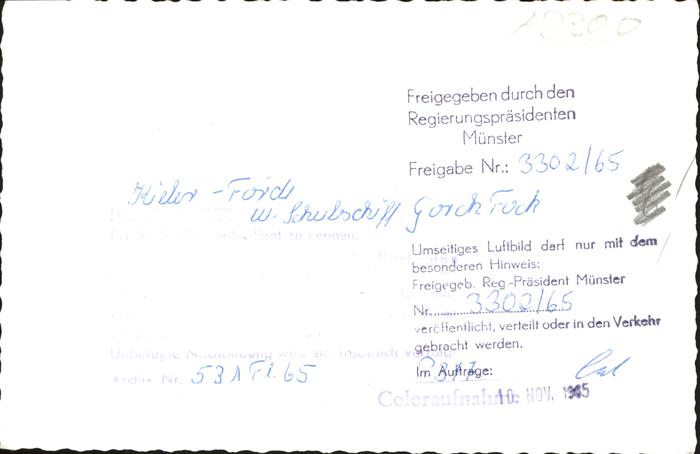 12300
Freigegeben durch den
Regierungspräsidenten
Münster
Freigabe Nr.: 3302/65
Kieler-Förde
m. Schulschiff Gorch Fock
zu nennen.
Umseitiges Luftbild darf nur mit dem
besonderen Hinweis:
Freigegeb. Reg.-Präsident Münster
Nr. 3302/65
veröffentlicht, verteilt oder in den Verkehr
gebracht werden.
Unbefugte Nachbildung wird strafrechtlich verfolgt
Archiv Nr. 531 Fl. 65
Im Auftrage:
Coloraufnahme
10. NOV. 1965